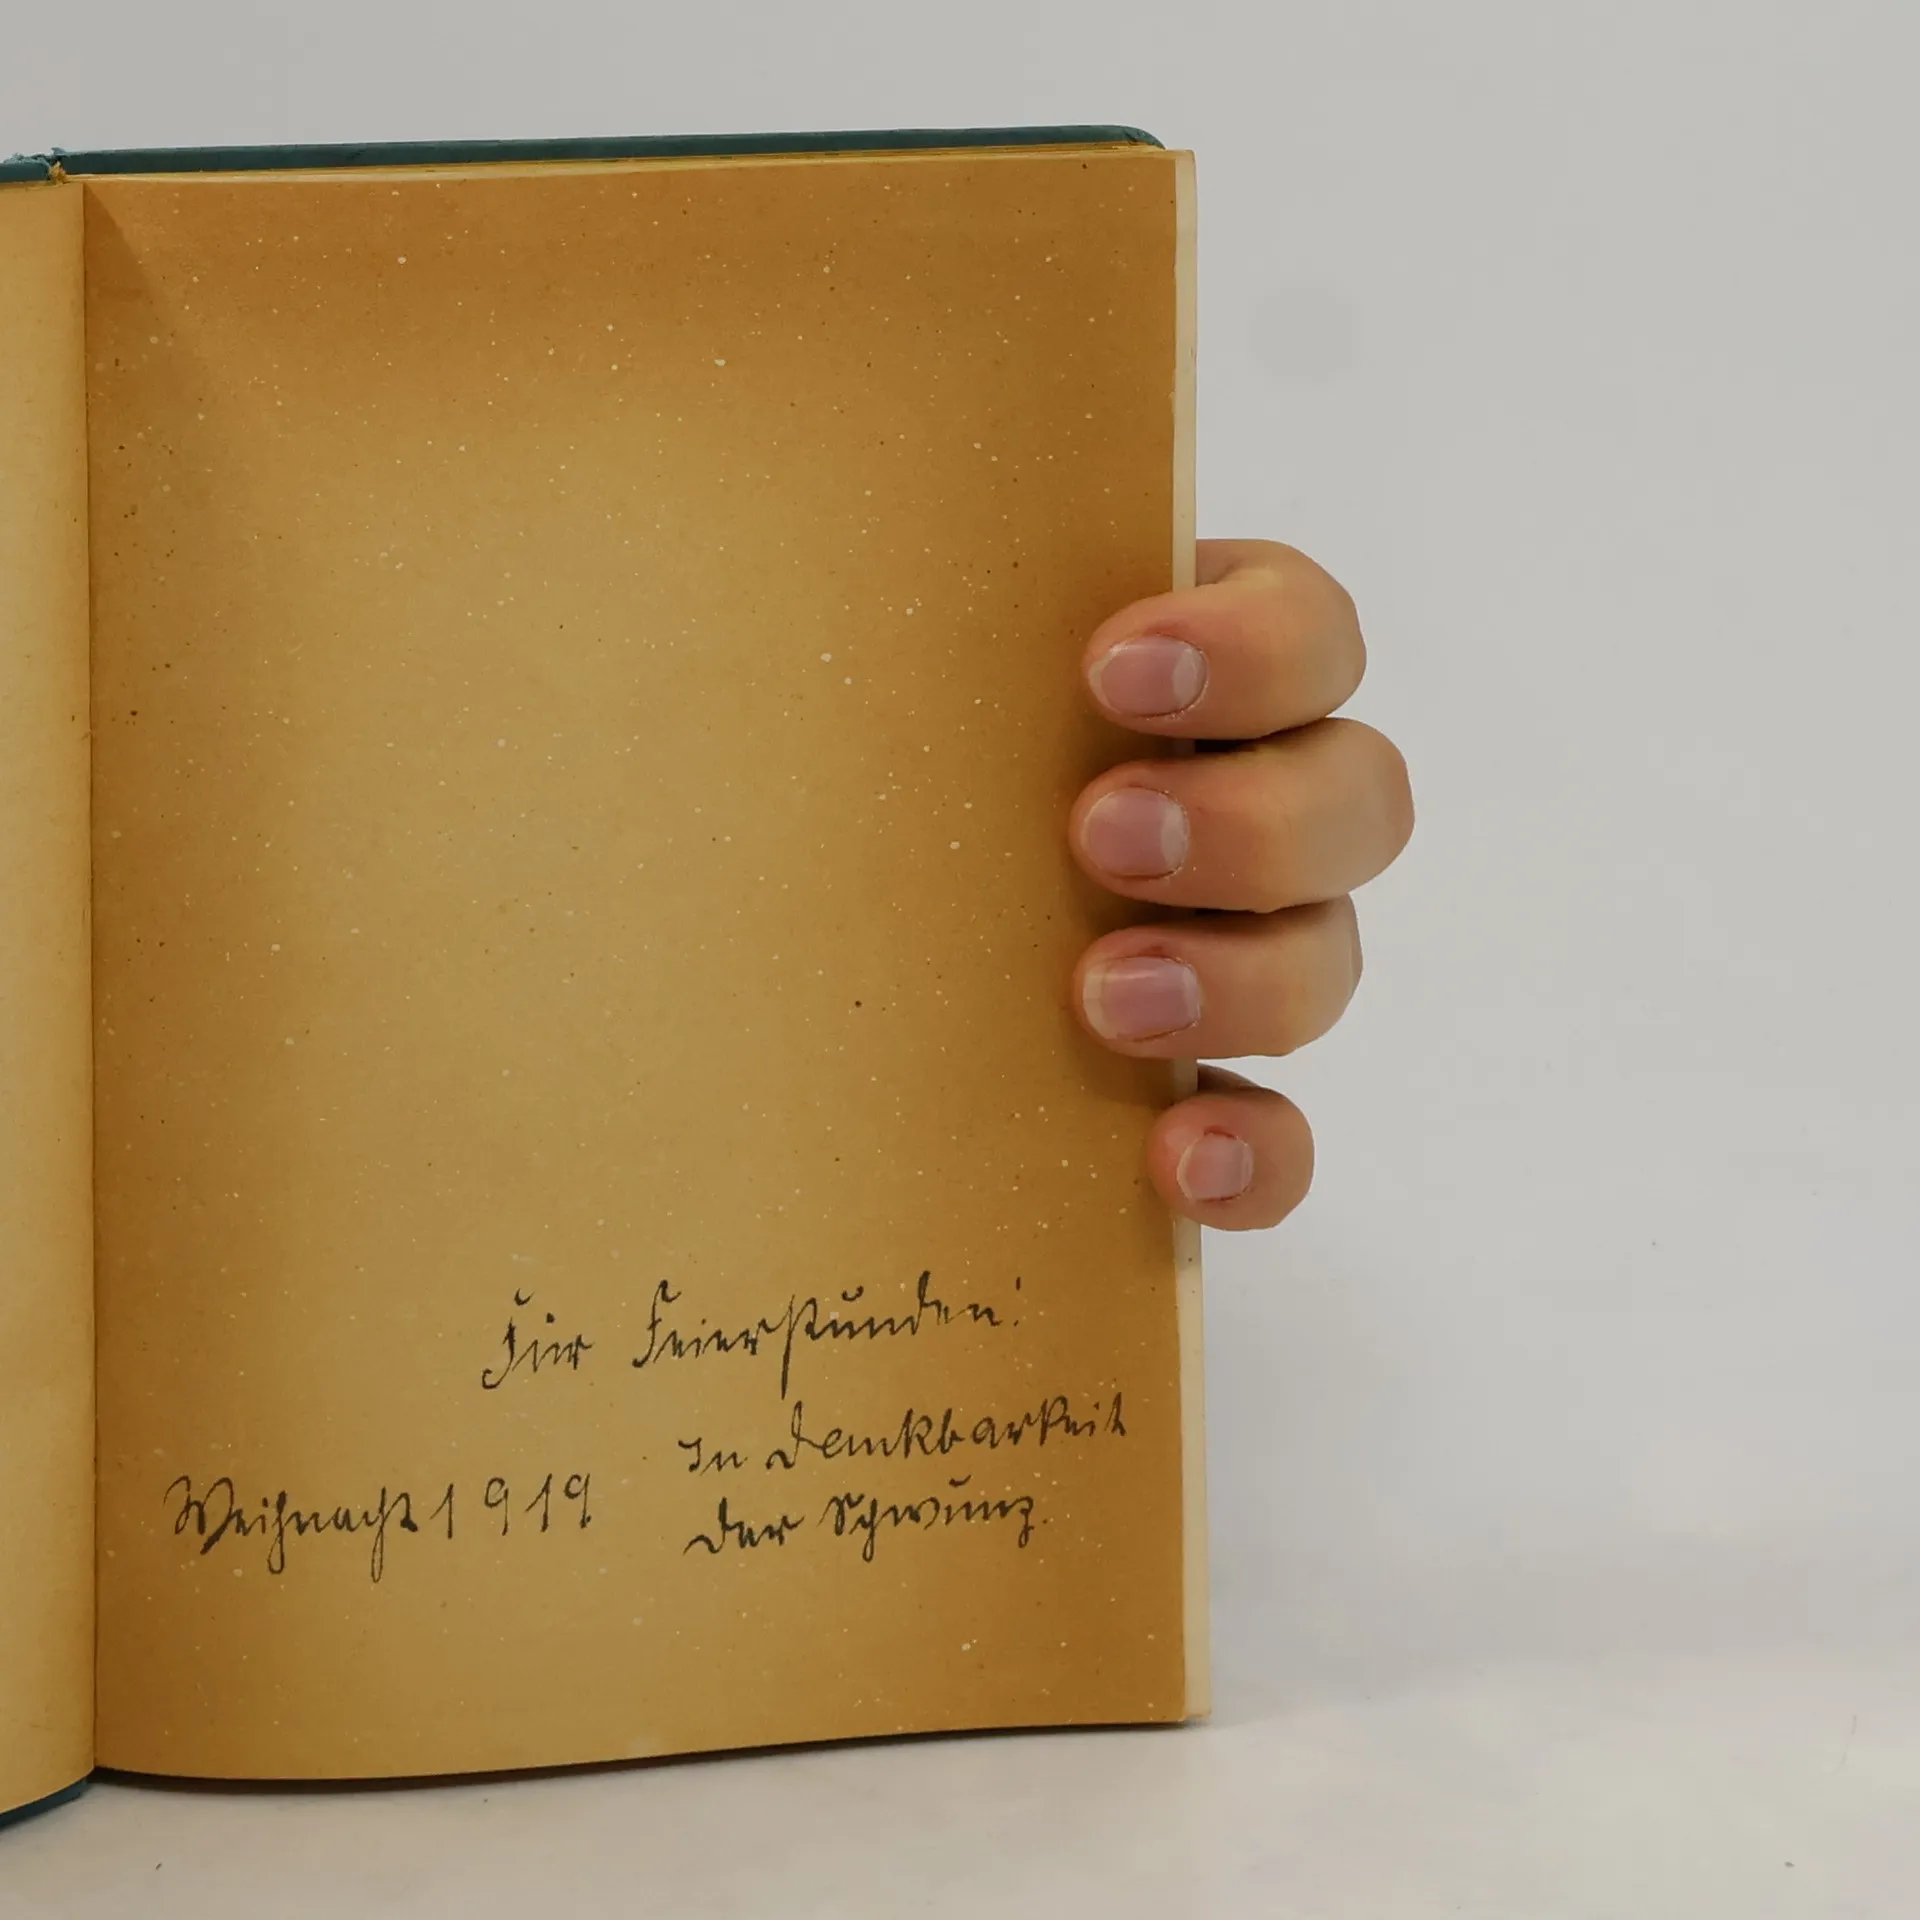 Für Feierstunden!
In Dankbarkeit
Weihnacht 1919.
Der Schwung.